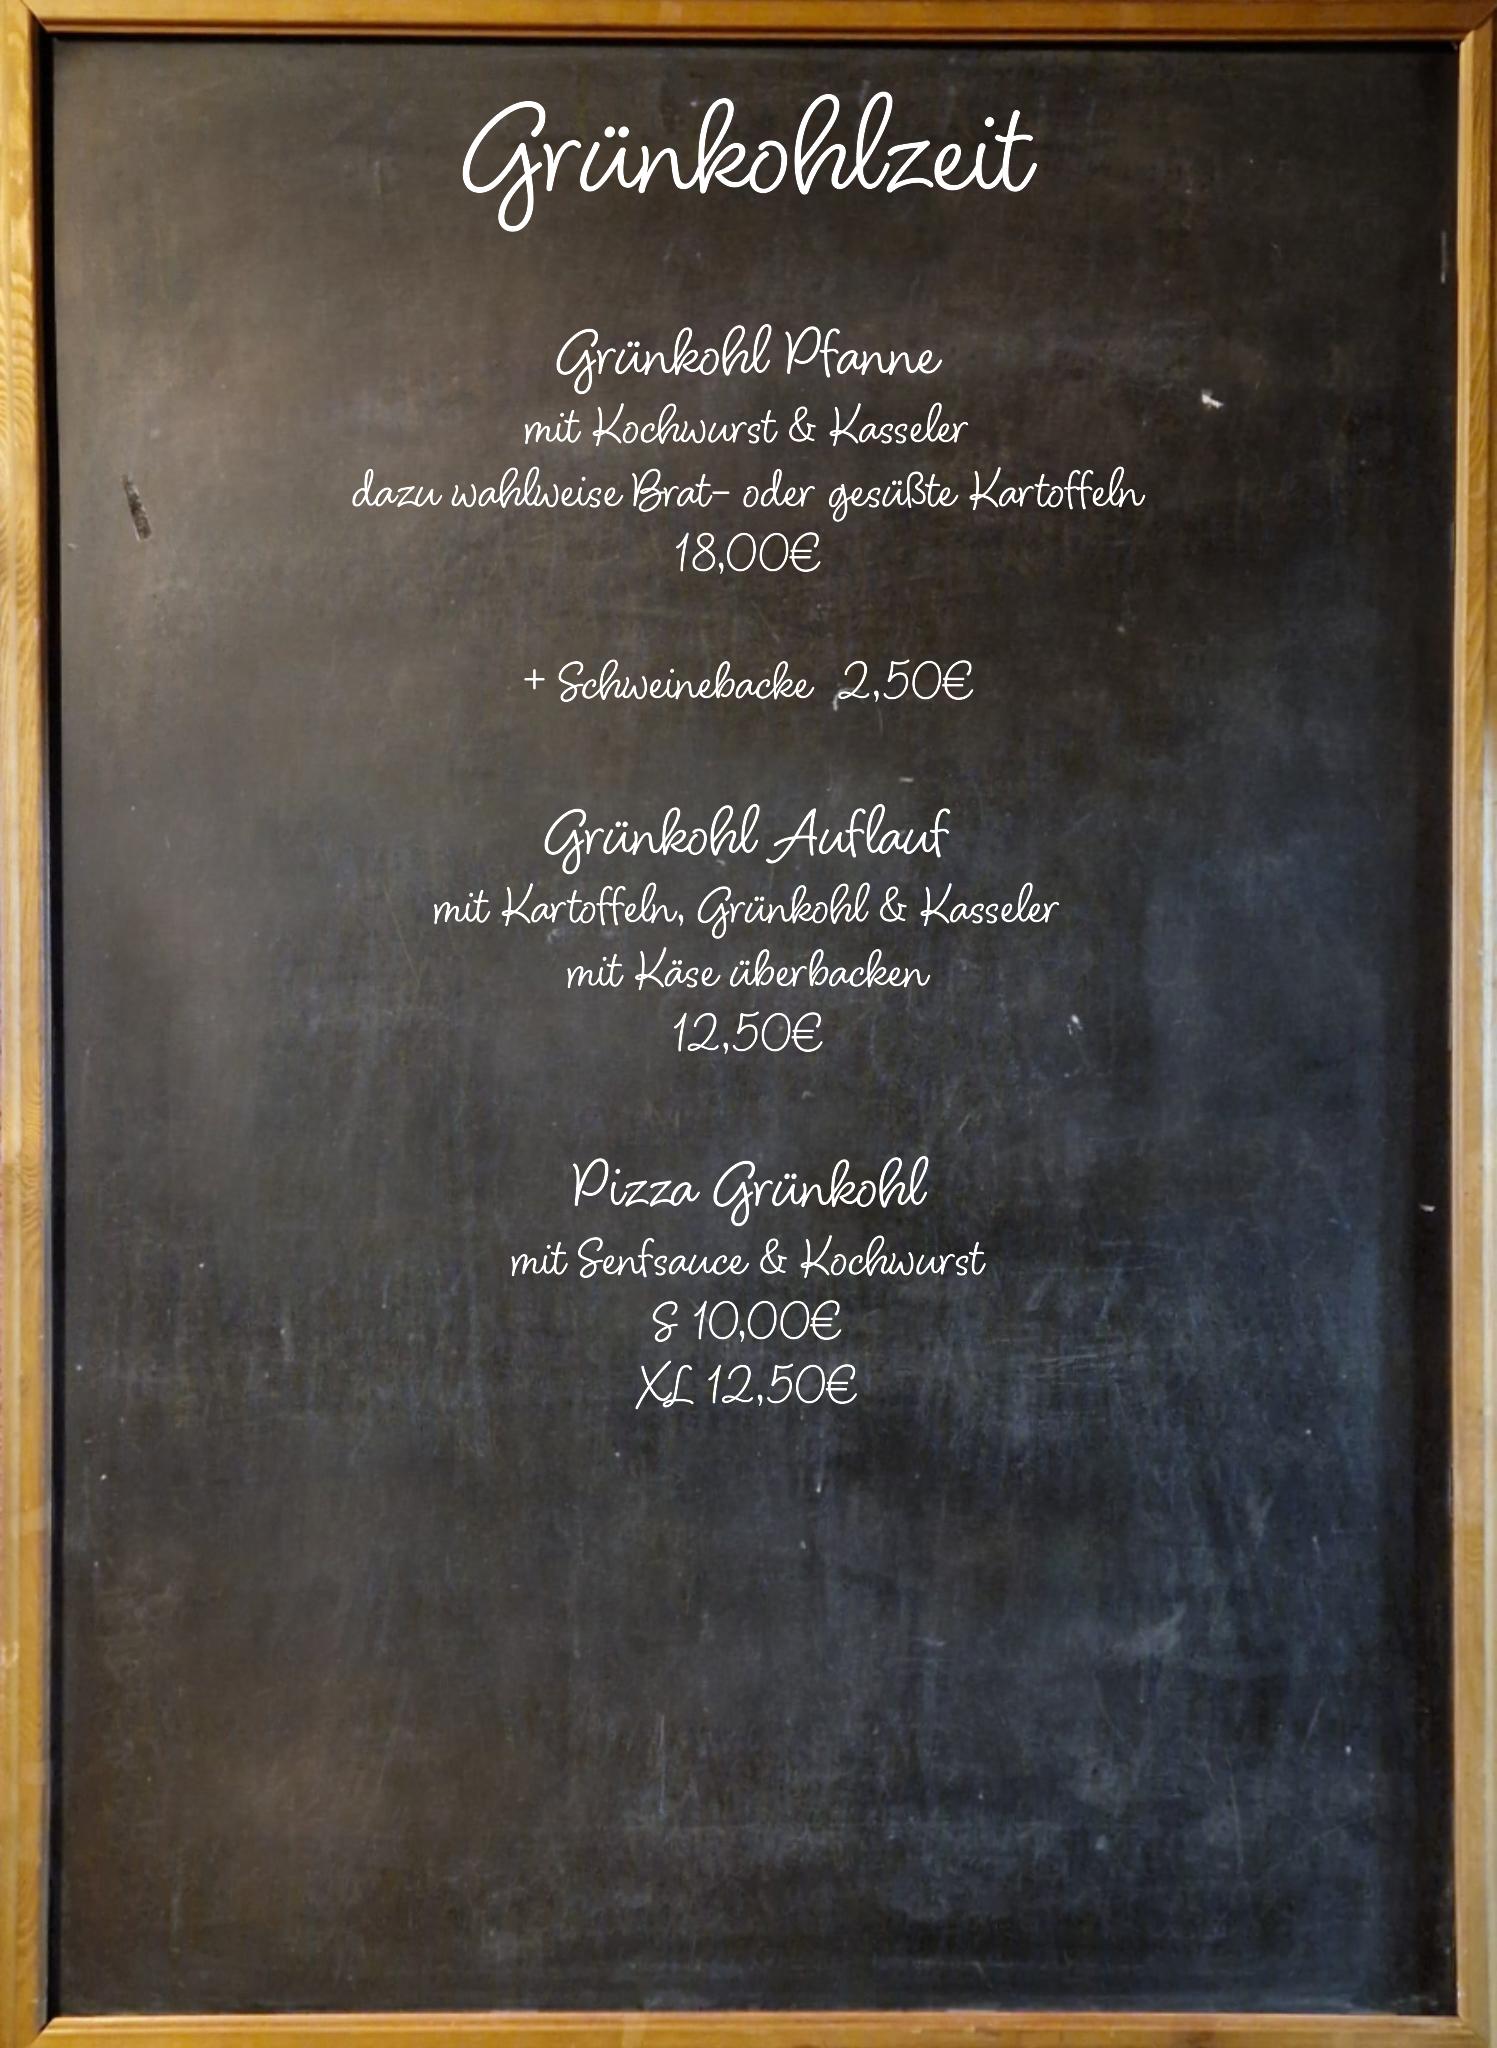 Grünkohlzeit
Grünkohl Pfanne
mit Kochwurst & Kasseler
dazu wahlweise Brat- oder gesüßte Kartoffeln
18,00€
+ Schweinebacke 2,50€
Grünkohl Auflauf
mit Kartoffeln, Grünkohl & Kasseler
mit Käse überbacken
12,50€
Pizza Grünkohl
mit Senfsauce & Kochwurst
S 10,00€
XL 12,50€